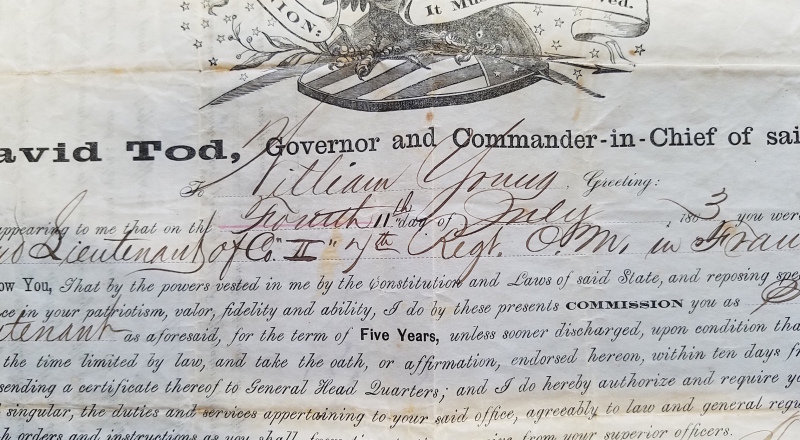 NION:
It Mu
ed.
avid Tod, Governor and Commander-in-Chief of sai
To William Young, Greeting:
appearing to me that on the Fourth 11th day of July, 1863 you were
Lieutenant of Co. "II" 7th Regt. O.M. in
ow You, That by the powers vested in me by the Constitution and Laws of said State, and reposing spe
ce in your patriotism, valor, fidelity and ability, I do by these presents COMMISSION you as
utenant as aforesaid, for the term of Five Years, unless sooner discharged, upon condition tha
the time limited by law, and take the oath, or affirmation, endorsed hereon, within ten days f
sending a certificate thereof to General Head Quarters; and I do hereby authorize and require y
singular, the duties and services appertaining to your said office, agreeably to law and general regu
h orders and instructions as you shall from time to time receive from your superior officers.